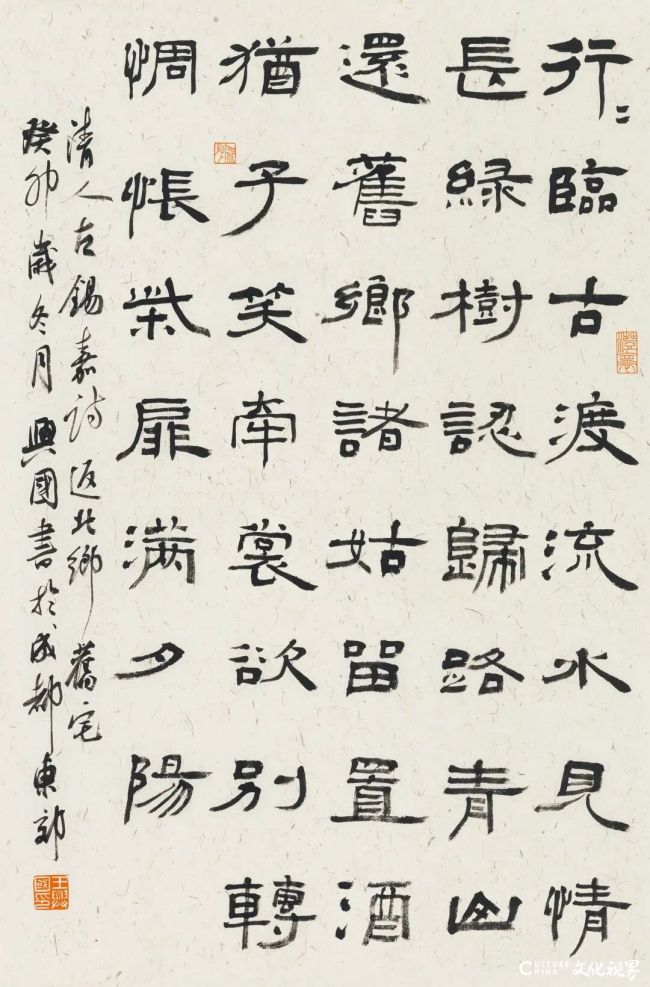 行〻臨古渡流水見情
長綠樹認歸路青山
還舊鄉諸姑留置酒
猶子笑牽裳欲別轉
惆悵柴扉滿夕陽
清人左錫嘉詩返北鄉舊宅
癸卯歲冬月興國書於成都東郊
王興國印
CULTURE CHINA 文化视界